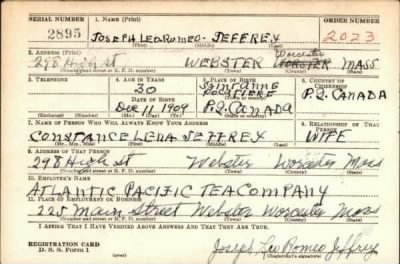 SERIAL NUMBER 1. NAME (Print) ORDER NUMBER
2895 JOSEPH LEO ROMEO JEFFREY 2023
(First) (Middle) (Last)
2. ADDRESS (Print)
Worcester
298 High St WEBSTER WORSTER MASS
(Number and street or R. F. D. number) (Town) (County) (State)
3. TELEPHONE 4. AGE IN YEARS 5. PLACE OF BIRTH 6. COUNTRY OF CITIZENSHIP
30 SAINT ANNE
DATE OF BIRTH (Town or county) P.Q. CANADA
Dec 11 1909 P.Q. CANADA
(Exchange) (Number) (Mo.) (Day) (Yr.) (State or country)
7. NAME OF PERSON WHO WILL ALWAYS KNOW YOUR ADDRESS 8. RELATIONSHIP OF THAT PERSON
CONSTANCE LENA JEFFREY WIFE
(Mr., Mrs., Miss) (First) (Middle) (Last)
9. ADDRESS OF THAT PERSON
298 High St Webster Worcester Mass
(Number and street or R. F. D. number) (Town) (County) (State)
10. EMPLOYER'S NAME
ATLANTIC PACIFIC TEA COMPANY
11. PLACE OF EMPLOYMENT OR BUSINESS
225 Main Street Webster Worcester Mass
(Number and street or R. F. D. number) (Town) (County) (State)
I AFFIRM THAT I HAVE VERIFIED ABOVE ANSWERS AND THAT THEY ARE TRUE.
REGISTRATION CARD
D. S. S. Form 1
Joseph Leo Romeo Jeffrey
(Registrant's signature)